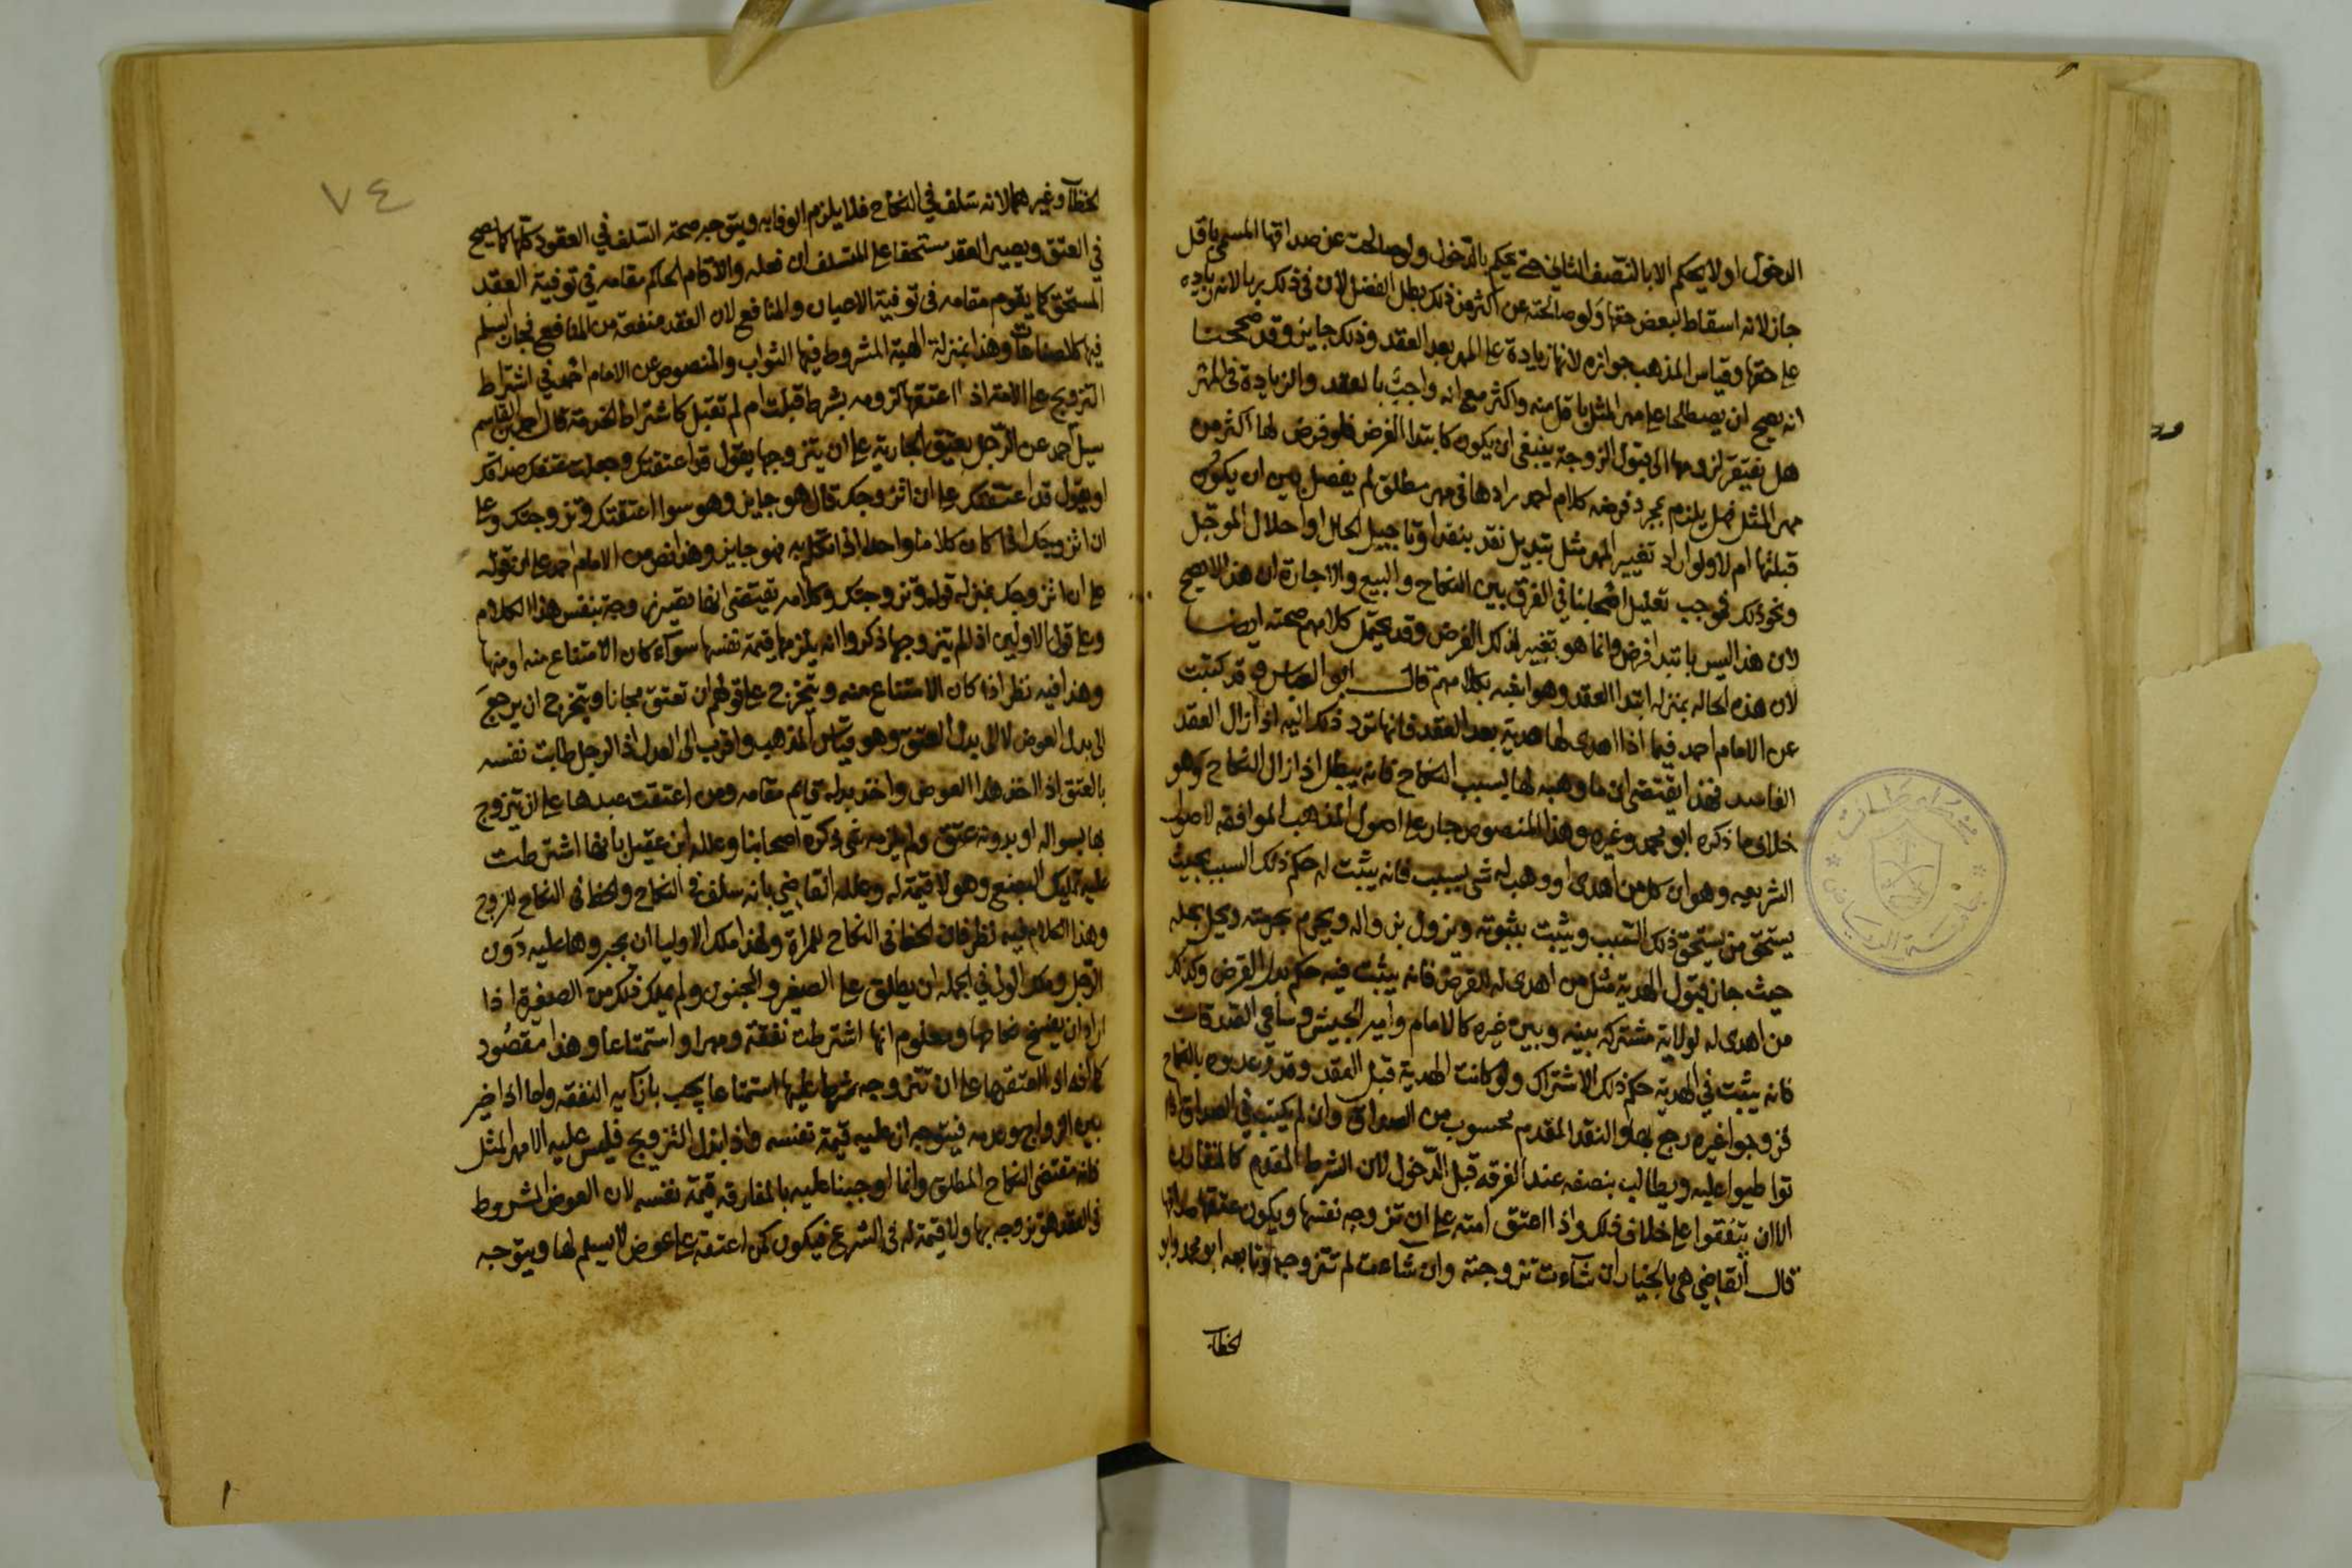 الدخول اولا يحكم الا بالتنصف الثاني حتى يحكم بالدخول ولو صالحت عن صداقها المسمى باقل
جاز لانه اسقاط لبعض حقها ولو صالحته عن اكثر من ذلك بطل الفضل لان في ذلك ربا لانه زيادة
على حقها وقياس المذهب جوازه لانها زيادة على المهر بعد العقد وذلك جايز وقد صححنا
انه يصح ان يصطلحا على مهر المثل باقل منه واكثر مع انه واجب بالعقد والزيادة في المهر
هل تفتقر لزومها الى قبول الزوجة ينبغي ان يكون كابتدا الفرض فلو فرض لها اكثر من
مهر المثل فهل يلزم بمجرد فرضه كلام احمد رادها في مهر مطلق لم يفصل بين ان يكون
قبلتها ام لا ولو اراد تغيير المهر مثل تبديل نقد بنقد او تاجيل الحال او احلال الموجل
ونحو ذلك فوجب تعليل اصحابنا في الفرق بين النكاح والبيع والاجارة ان هذا لا يصح
لان هذا ليس بابتدا فرض وانما هو تغيير لذلك الفرض وقد يحتمل كلامهم صحته ايضا
لان هذه الحاله بمنزله ابتدا العقد وهو اشبه بكلامهم قال ابو العباس وقد كتبت
عن الامام احمد فيما اذا اهدى لها هدية بعد العقد فانها ترد ذلك اليه اذا زال العقد
الفاسد فهذا يقتضي ان ما وهبه لها بسبب النكاح فانه يبطل اذا زال النكاح وهو
خلاف ما ذكره ابو محمد وغيره وهذا المنصوص جار على اصول المذهب الموافقه لاصول
الشريعه وهو ان كل من اهدى او وهب له شي بسبب فانه يثبت له حكم ذلك السبب بحيث
يستحق من يستحق ذلك السبب ويثبت بثبوته ويزول بزواله ويحرم بحرمته ويحل بحله
حيث جاز قبول الهدية مثل من اهدى له للقرض فانه يثبت فيه حكم بدل القرض وكذلك
من اهدى له لولاية مشتركه بينه وبين غيره كالامام وامير الجيش وساعي الصدقات
فانه يثبت في الهدية حكم ذلك الاشتراك ولو كانت الهدية قبل العقد وقد وعدوه بالنكاح
فزوجوا غيره رجع بها والنقد المقدم محسوب من الصداق وان لم يكتب في الصداق اذا
تواطيوا عليه ويطالب بنصفه عند الفرقه قبل الدخول لان الشرط المقدم كالمقارن
الا ان يتفقوا على خلاف ذلك واذا اعتق امته على ان تزوجه نفسها ويكون عتقها صداقها
قال القاضي هي بالخيار ان شآءت تزوجته وان شاءت لم تتزوجه وتابعه ابو محمد وابو
الخطاب
٧٤
الخطآب وغيرهما لانه سلف في النكاح فلا يلزم الوفا به ويتوجه صحة السلف في العقود كلها كما يصح
في العتق ويصير العقد مستحقا على المستسلف ان فعله والا قام الحاكم مقامه في توفية العقد
المستحق كما يقوم مقامه في توفية الاعيان والمنافع لان العقد منفعة من المنافع فجاز السلم
فيها كالصناعات وهذا بمنزلة الهبة المشروط فيها الثواب والمنصوص عن الامام احمد في اشتراط
التزويج على الامة اذا اعتقها لزومه بشرط قبلت ام لم تقبل كاشتراط الخدمة قال احمد بن القاسم
سيل احمد عن الرجل يعتق الجارية على ان يتزوجها يقول قد اعتقتك وجعلت عتقك صداقك
او يقول قد اعتقتك على ان اتزوجك قال هو جايز وهو سوا اعتقتك وتزوجتك وعلى
ان اتزوجك اذا كان كلاما واحدا اذا تكلم به فهو جايز وهذا نص من الامام احمد على ان قوله
على ان اتزوجك بمنزله قوله وتزوجتك وكلامه يقتضي انها تصير زوجة بنفس هذا الكلام
وعلى قول الاولين اذا لم يتزوجها ذكروا انه يلزمها قيمة نفسها سوآء كان الامتناع منه او منها
وهذا فيه نظر اذا كان الامتناع منه ويتخرج على قولهم ان تعتق مجانا ويتخرج ان يرجع
الى بدل العوض لا الى بدل العتق وهو قياس المذهب واقرب الى العدل اذ الرجل طابت نفسه
بالعتق اذا اخذ هذا العوض واخذ بدله قايم مقامه ومن اعتقت عبدها على ان يتزوج
بها بسواله او بدونه عتق ولم يلزمه شي ذكره اصحابنا وعلله ابن عقيل بانها اشترطت
عليه تمليك البضع وهو لا قيمة له وعلله القاضي بانه سلف في النكاح والحظ في النكاح للزوج
وهذا الكلام فيه نظر فان الحظ في النكاح للمراة ولهذا ملك الاوليا ان يجبروها عليه دون
الرجل وملك الولي في الجمله ان يطلق على الصغير والمجنون ولم يملك ذلك من الصغيرة اذا
اراد ان يفسخ نكاحها ومعلوم انها اشترطت نفقة ومهرا واستمتاعا وهذا مقصود
كما انه اذا اعتقها على ان تتزوجه شرط عليها استمتاعا يجب بازآيه النفقه واما اذا خير
بين الزواج وعدمه فيتوجه ان عليه قيمة نفسه واذا بذل التزويج فليس عليه الا مهر المثل
فانه مقتضى النكاح المطلق وانما اوجبنا عليه بالمفارقه قيمة نفسه لان العوض المشروط
في العقد هو تزوجه بها ولا قيمة له في الشرع فيكون كمن اعتقه على عوض لا يسلم لها ويتوجه